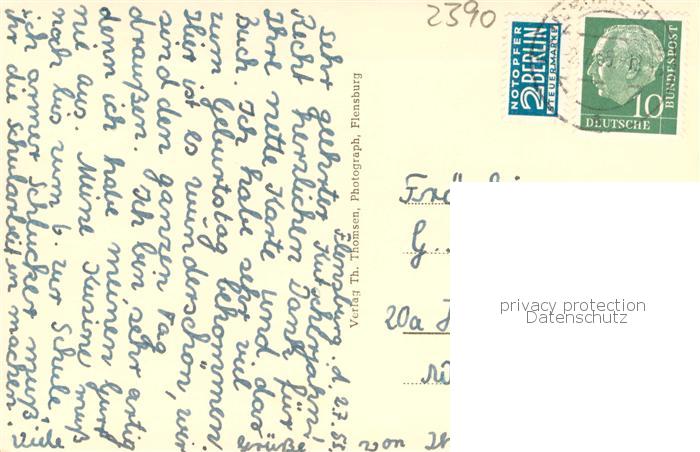 2390
NOTOPFER
2 BERLIN
STEUERMARKE
10
DEUTSCHE
BUNDESPOST
Flensburg, d. 2.7.55.
Sehr geehrter
Recht herzlichen Dank für
Ihre nette Karte und das
Buch. Ich habe sehr viel
zum Geburtstag bekommen.
Hier ist es wunderschön, wir
sind den ganzen Tag
draußen. Ich bin sehr artig
denn ich habe meinen Gurt
mit aus. Meine Kusine muß
noch bis zum 6. zur Schule,
ich armer Schlucker muß
ihr die Schularbeiten machen.
Viele Grüße von
Verlag Th. Thomsen, Photograph, Flensburg
G.
20a
privacy protection
Datenschutz